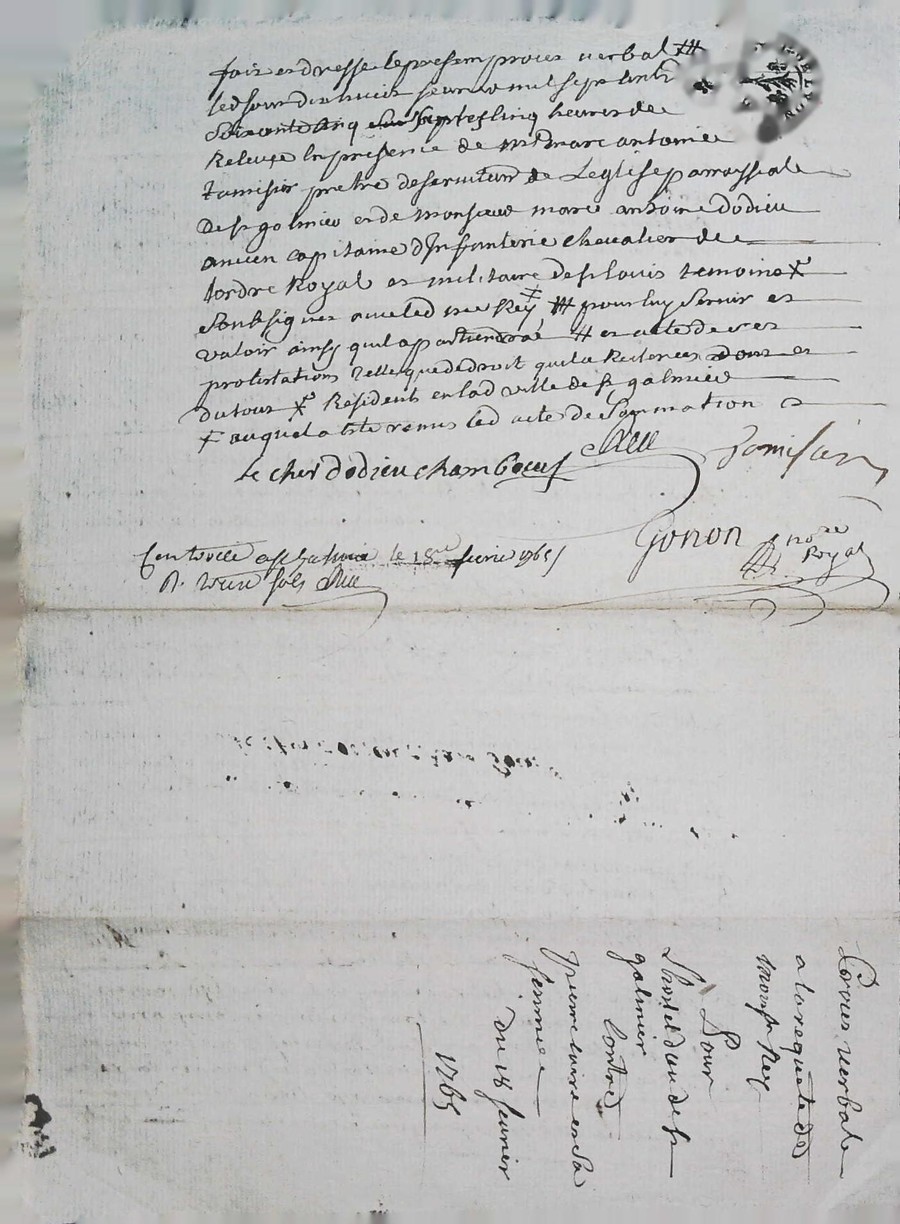 fait et dressé le present proces verbal #
led jour dixhuit feuvrier mil sept cents
soixante cinq sur les cinq heures de
Relevee en presence de Mre marc antoine
tamisier pretre deserviteur de Leglise parroyssiale
De st galmier et de monsieur marc antoine Dodieu
ancien capitaine d'Infanterie chevalier de
lordre Royal et militaire de st louis temoins
soubsignes avec led Rey # pour luy servir et
valoir ainsy quil apartiendra # et acte de ses
protestations telle que de droit quil a Reiterees et
du tout Residents en lad ville de st galmier
auquel a este remis led acte de Sommation
Le cher dodieu chamboeuf Tamisier
Gonon nore Royal
Controllé a st galmier le 18me fevrier 1765
R. sols
Proces verbale
a la requete de
Rey
Pour
Lhotel dieu de st
galmier
Contre
pierre et sa
femme
Du 18 feuvrier
1765